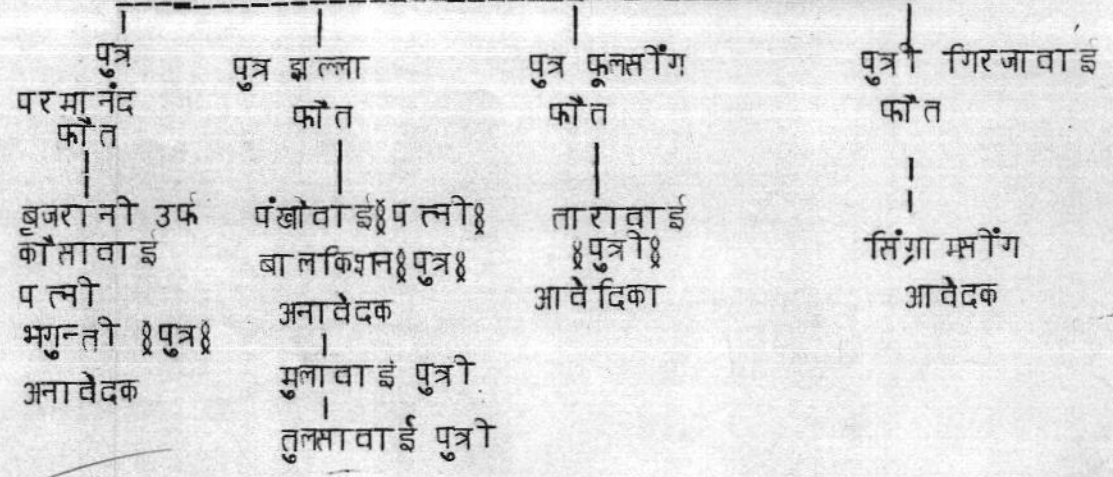 पुत्र
परमानंद
फौत
बृजरानी उर्फ
कौसावाई
पत्नी
भगुन्ती §पुत्र§
अनावेदक
पुत्र झल्ला
फौत
पंखोवाई§पत्नी§
बालकिशन§पुत्र§
अनावेदक
मुलावाई पुत्री
तुलसावाई पुत्री
पुत्र फूलसींग
फौत
तारावाई
§पुत्री§
आवेदिका
पुत्री गिरजावाई
फौत
सिंग्रामसींग
आवेदक